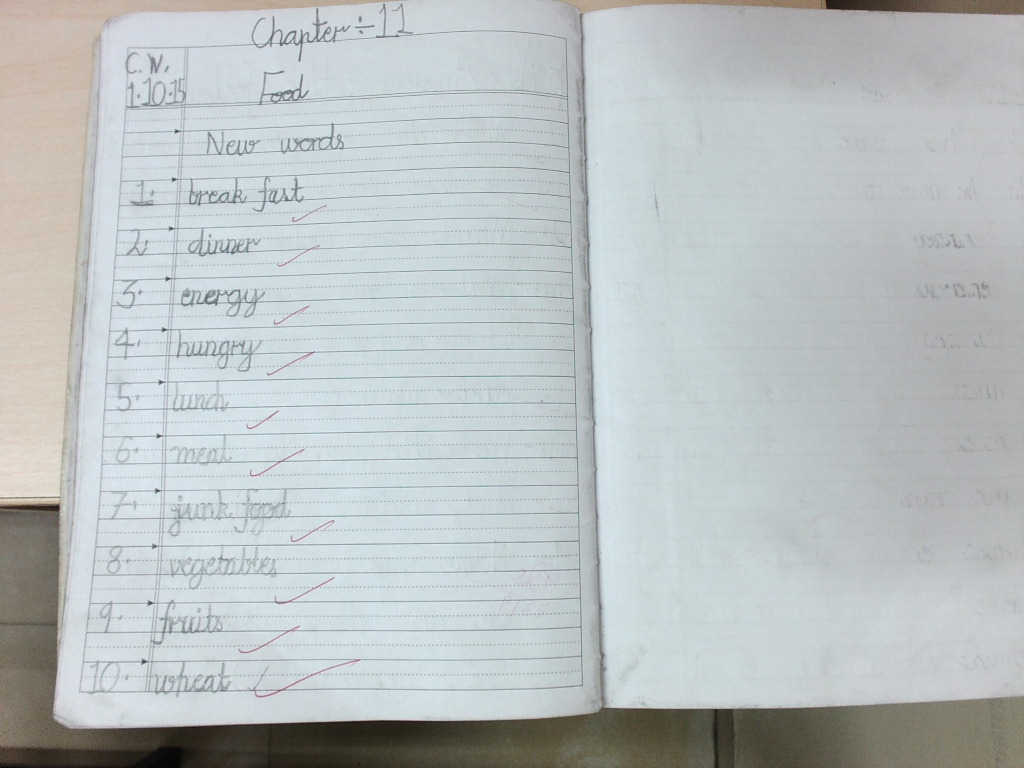 Chapter ÷ 11
C.W.
1.10.15 Food
New words
1. break fast
2. dinner
3. energy
4. hungry
5. lunch
6. meal
7. junk food
8. vegetables
9. fruits
10. wheat